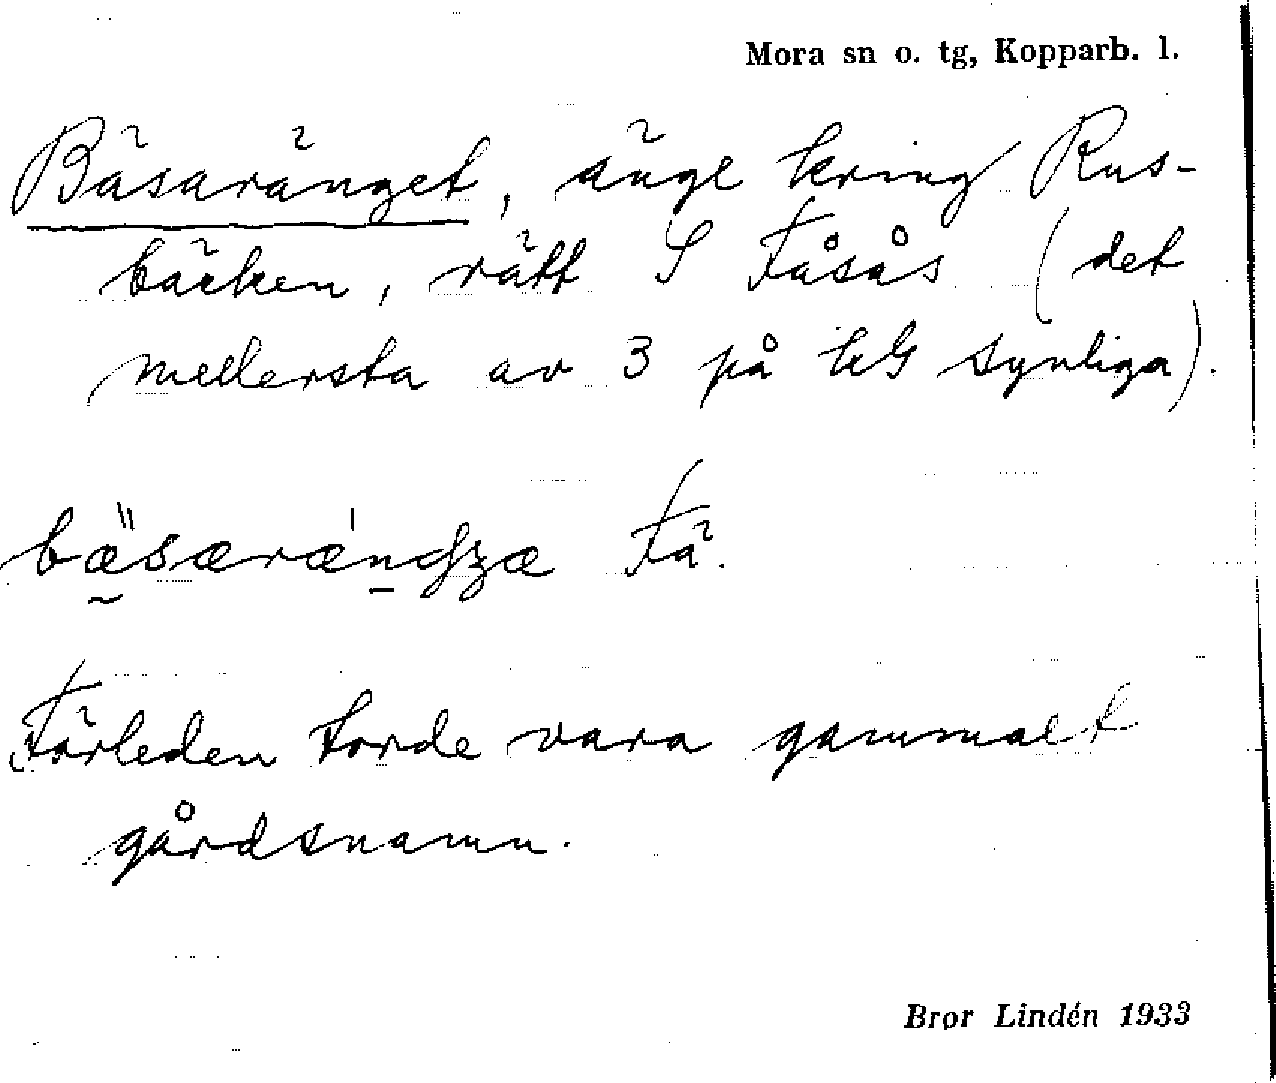 Mora sn o. tg, Kopparb. l.
Bäsaränget, änge kring Rus-
bäcken, rätt S Fåsås (det
mellersta av 3 på kG synliga).
Fä.
Förleden torde vara gammalt
gårdsnamn.
Bror Lindén 1933